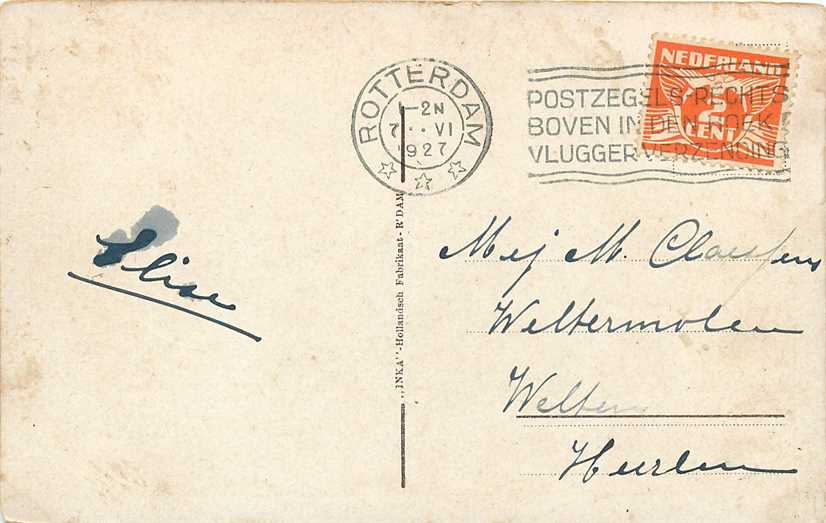 ROTTERDAM
1-2N
7·· VI
1927
POSTZEGELS RECHTS
BOVEN IN DEN HOEK
VLUGGER VERZENDING
NEDERLAND
2
CENT
Elise
„INKA"-Hollandsch Fabrikaat - R'DAM
Mej M. Claessens
Weltermolen
Welten
Heerlen